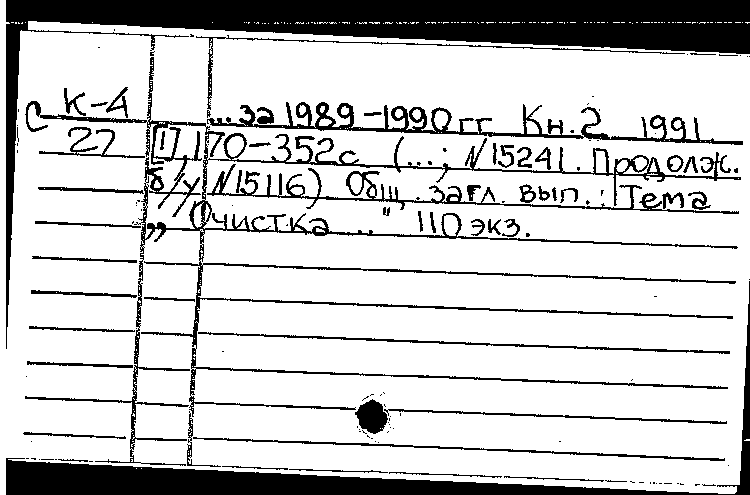 с К-4
27
... за 1989-1990 гг Кн. 2 1991.
[1], 170-352с (...; N15241. Продолж.
б/у N15116) Общ. загл. вып.: Тема
„Очистка ..." 110 экз.